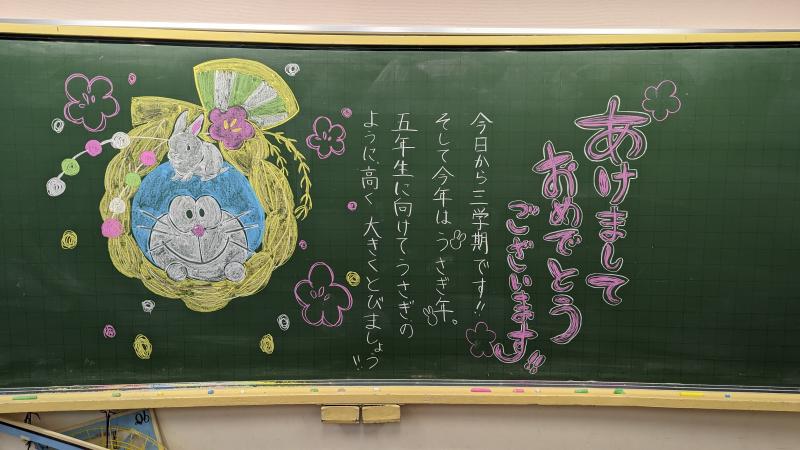 あけまして
おめでとう
ございます!!
今日から三学期です!!
そして今年はうさぎ年。
五年生に向けてうさぎの
ように、高く大きくとびましょう!!